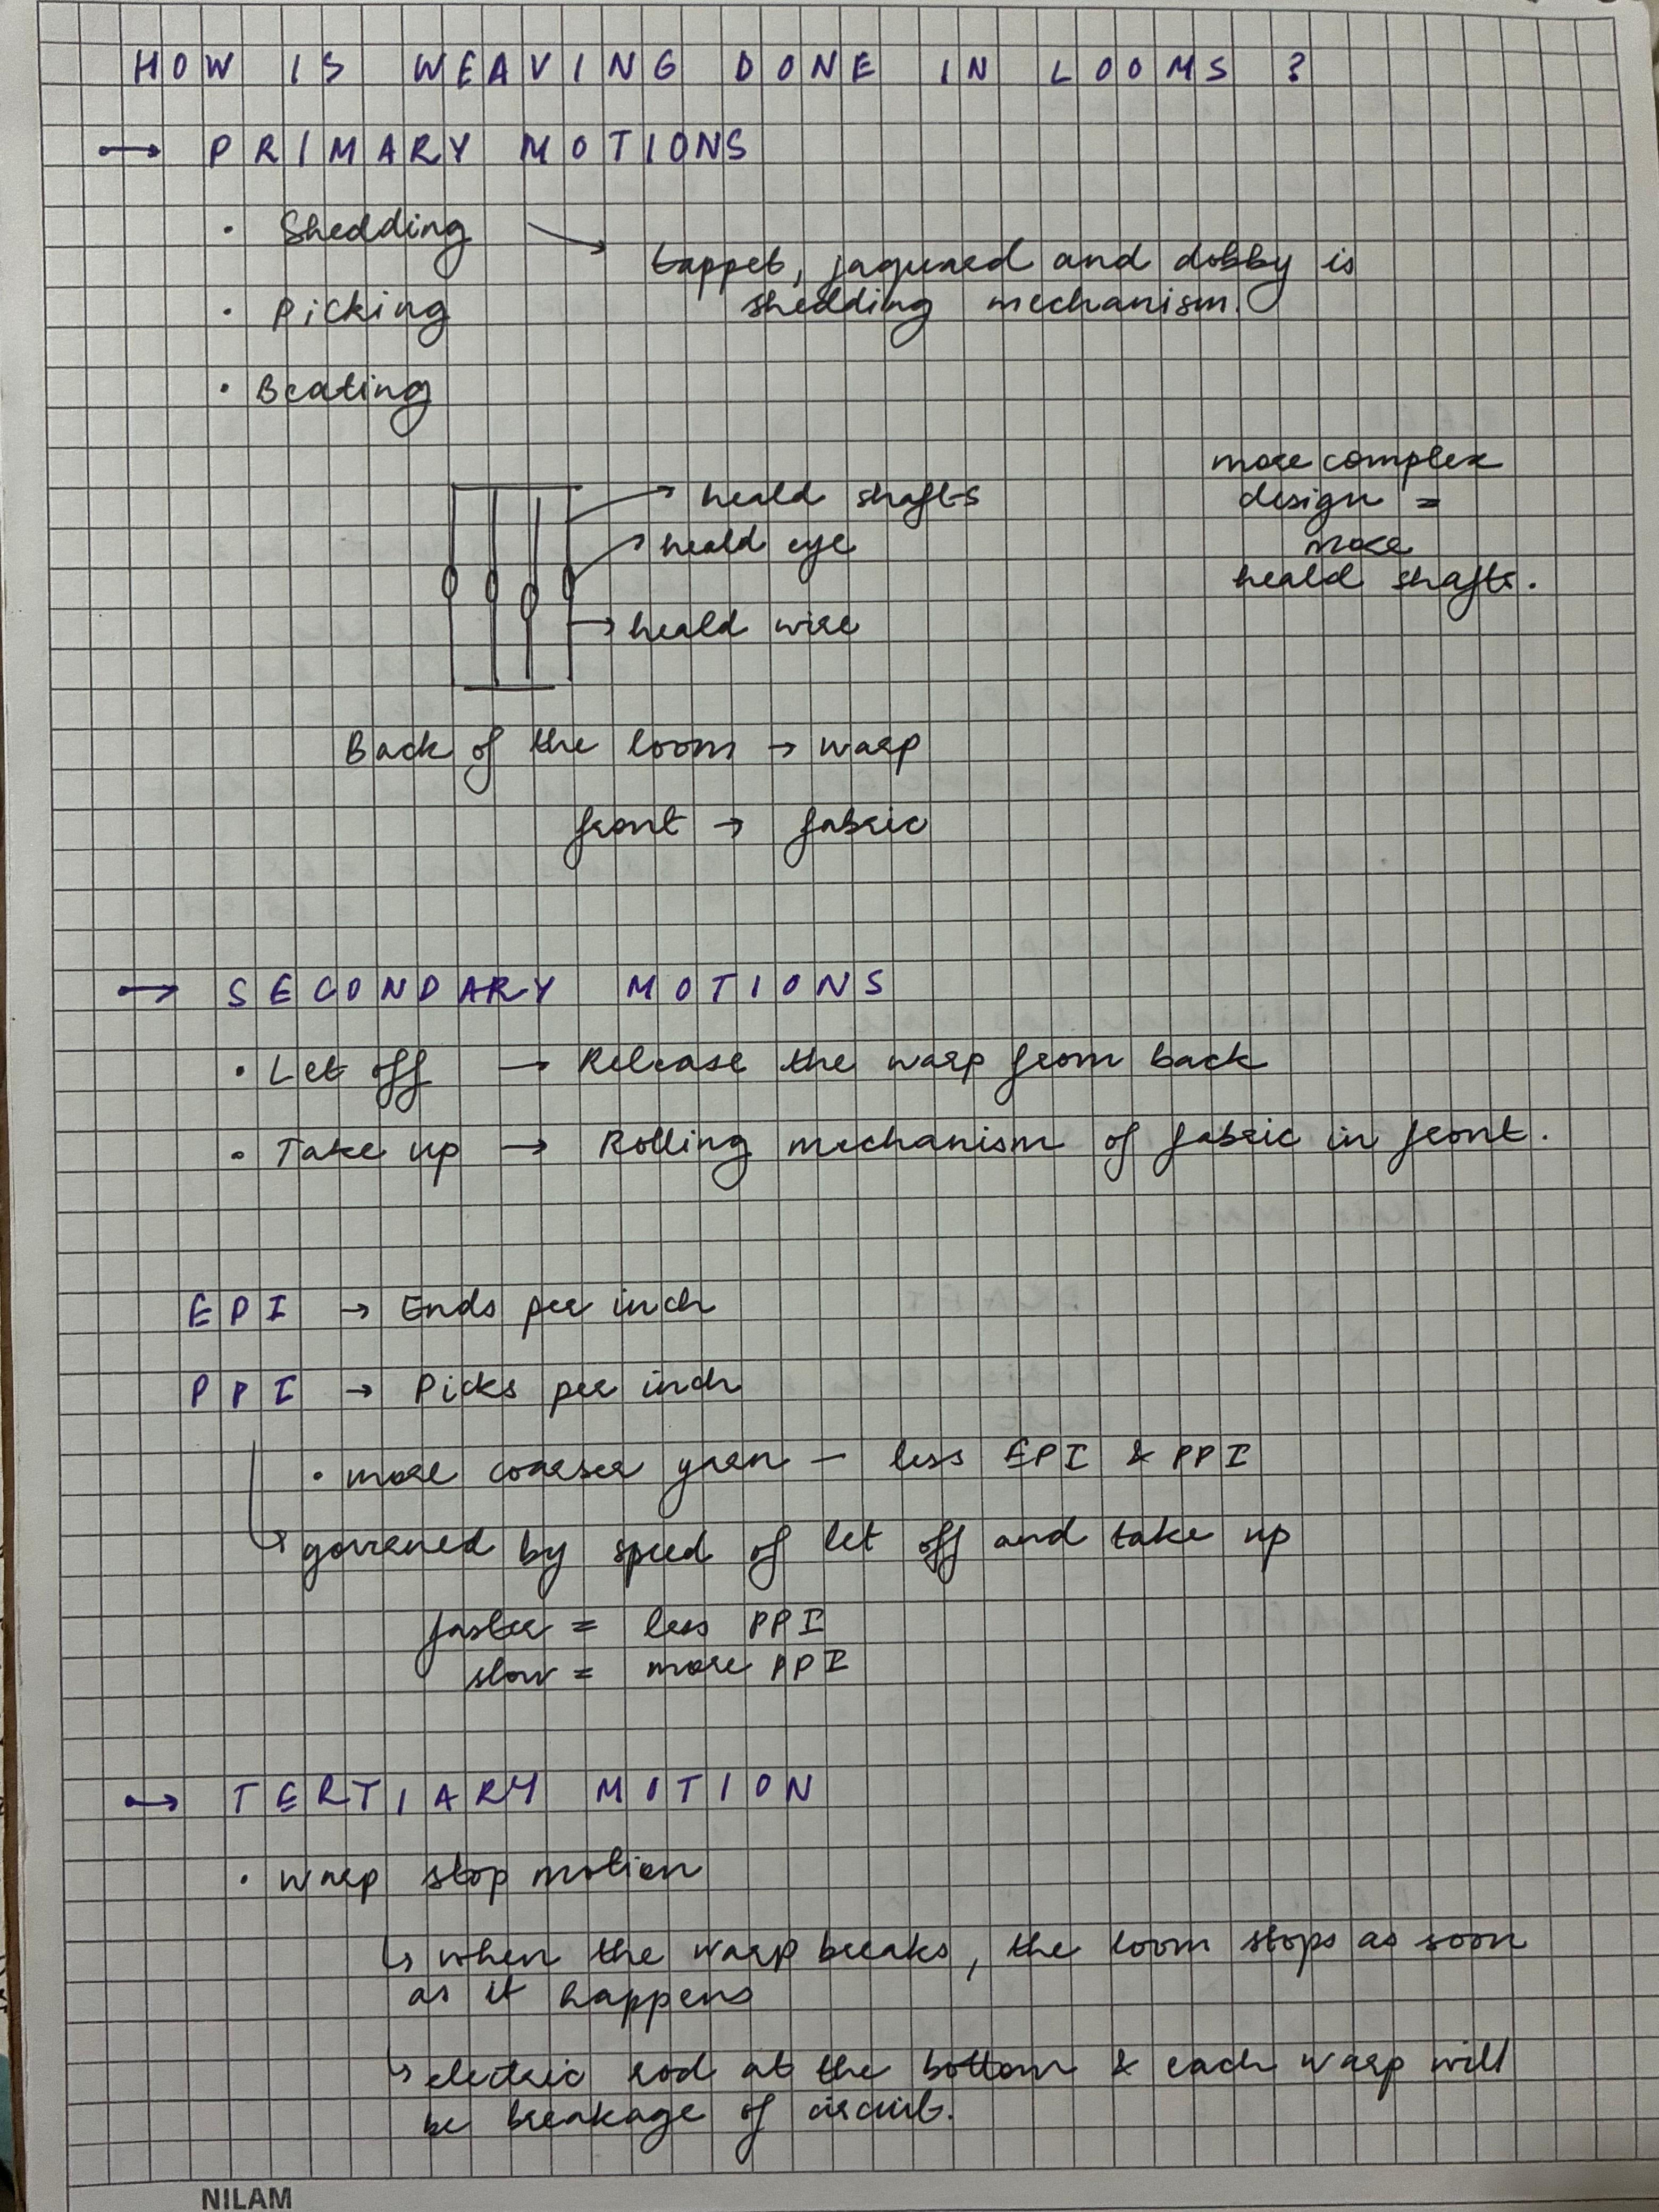 HOW IS WEAVING DONE IN LOOMS ?
→ PRIMARY MOTIONS
• Shedding →
tappet, jaquard and dobby is
shedding mechanism.
• Picking
• Beating
more complex
design =
more
heald shafts.
→ heald shafts
→ heald eye
→ heald wire
Back of the loom → warp
front → fabric
→ SECONDARY MOTIONS
• Let off → Release the warp from back
• Take up → Rolling mechanism of fabric in front.
EPI → Ends per inch
PPI → Picks per inch
• more coarser yarn – less EPI & PPI
↳ governed by speed of let off and take up
faster = less PPI
slow = more PPI
→ TERTIARY MOTION
• warp stop motion
↳ when the warp breaks, the loom stops as soon
as it happens
↳ electric rod at the bottom & each warp will
be breakage of circuit.
NILAM